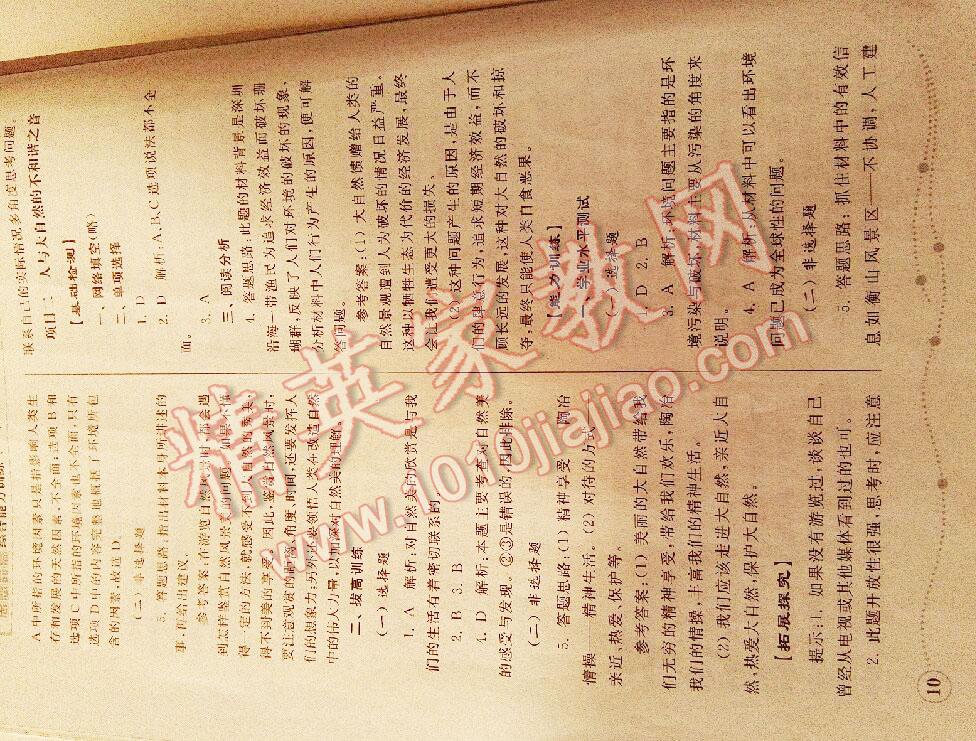 A 中所指的环境因素只是指影响人类生
存和发展的天然因素,不全面;选项 B 和
选项 C 中所指的环境因素也不全面,只有
选项 D 中的内容完整地概括了环境所包
含的因素,故选 D。
(二)非选择题
5. 答题思路:指出材料本身所讲述的
事,再给出建议。
参考答案:在游览自然风景时,都会遇
到怎样鉴赏自然风景美的问题。如果不懂
一定的方法,就感受不到大自然的优美,
得不到美的享受。因此,鉴赏自然风景时,
要注意观赏的距离、角度、时间,还要发挥人
们的想象力;另外还要领悟人类在改造自然
中的伟大力量,以加深对自然美的理解。
二、拔高训练
(一)选择题
1. A 解析:对自然美的欣赏是与我
们的生活有着密切联系的。
2. B 3. B
4. D 解析:本题主要考查对自然美
的感受与发现。②③是错误的,因此排除。
(二)非选择题
5. 答题思路:(1)精神享受——陶冶
情操——精神生活。(2)对待的方式——
亲近、热爱、保护等。
参考答案:(1)美丽的大自然带给我
们无穷的精神享受,带给我们欢乐,陶冶
我们的情操,丰富我们的精神生活。
(2)我们应该走进大自然,亲近大自
然,热爱大自然,保护大自然。
【拓展探究】
提示:1. 如果没有游览过,谈谈自己
曾经从电视或其他媒体看到过的也可。
2. 此题开放性很强,思考时,应注意
联系自己的实际情况多角度思考问题。
项目二 人与大自然的不和谐之音
【基础检测】
一、网络填空(略)
二、单项选择
1. D
2. D 解析:A、B、C 选项说法都不全
面。
3. A
三、阅读分析
4. 答题思路:此题的材料背景是深圳
沿海一带渔民为追求经济效益而破坏珊
瑚群,反映了人们对环境的破坏的现象,
分析材料中人们行为产生的原因,便可解
答问题。
参考答案:(1)大自然馈赠给人类的
自然景观遭到人为破坏的情况日益严重。
这种以牺牲生态为代价的经济发展,最终
会让我们遭受更大的损失。
(2)这种问题产生的原因,是由于人
们的肆意行为,追求短期经济效益,而不
顾长远的发展,这种对大自然的破坏和掠
夺,最终只能使人类自食恶果。
【能力训练】
一、学业水平测试
(一)选择题
1. D 2. B
3. A 解析:环境问题主要指的是环
境污染与破坏,材料主要从污染的角度来
说明。
4. A 解析:从材料中可以看出环境
问题已成为全球性的问题。
(二)非选择题
5. 答题思路:抓住材料中的有效信
息如衡山风景区——不协调,人工建
10
精英家教网
www.1010jiajiao.com